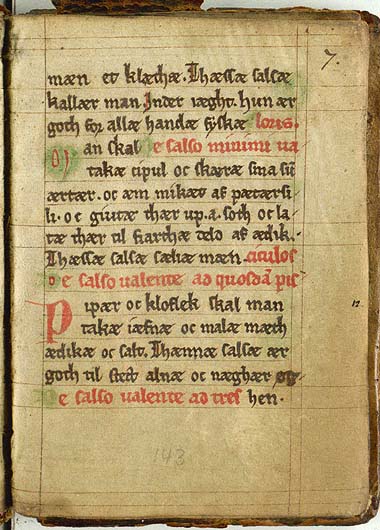 7.
mæn et klæthæ. Thæssæ salsæ
kallær man Inder iæght. hun ær
goth for allæ handæ syukæ loris.
an skal e salso minimi ua
takæ cipul oc skæræ sma sū
ærtær. oc æm mikæt af pætærsi
li. oc giutæ thær up.a. soth oc la
tæ thær til fiarthæ teld af ædik.
Thæssæ salsæ sætiæ mæn. ciculos
e salso ualente ad quosdā pis
Pipær oc kloflek skal man
takæ iæfnæ oc malæ mæth
ædikæ oc salt. Thænnæ salsæ ær
goth til stect alnæ oc næghær
e salso ualente ad tres hen.
12
143